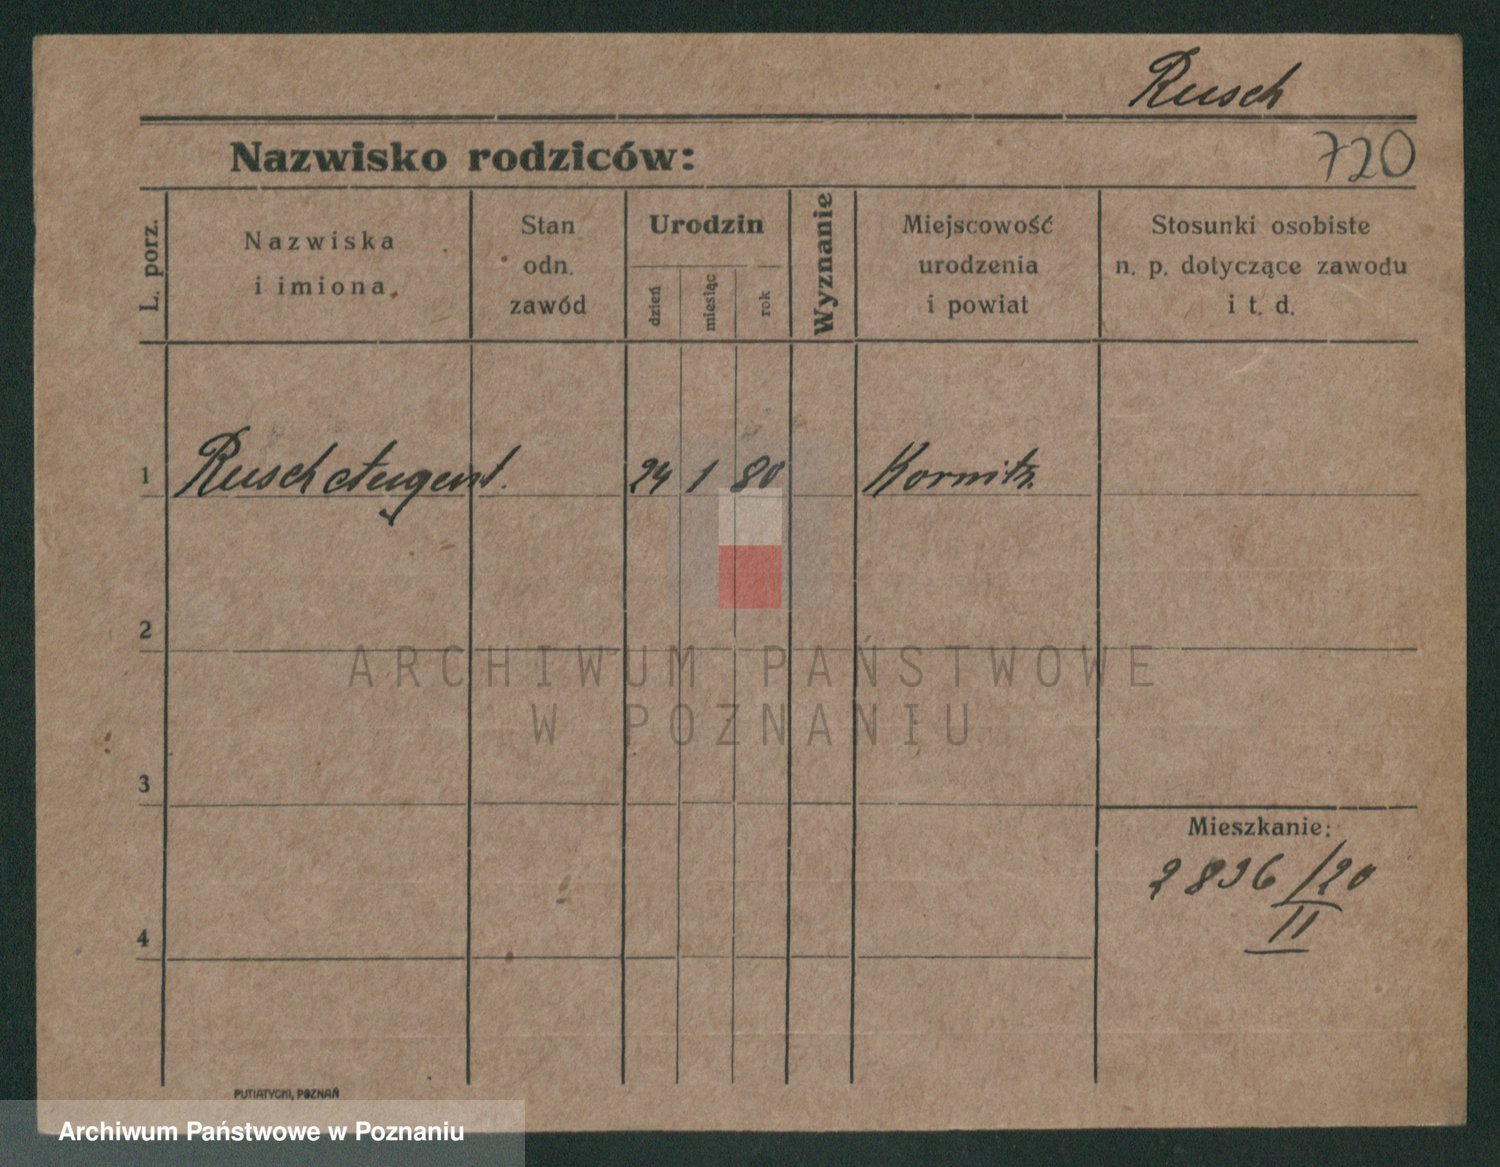 Rusch
Nazwisko rodziców:
720
L. porz.
Nazwiska
i imiona.
Stan
odn.
zawód
Urodzin
dzień
miesiąc
rok
Wyznanie
Miejscowość
urodzenia
i powiat
Stosunki osobiste
n. p. dotyczące zawodu
i t. d.
1 Rusch August. 24 1 80
2
ARCHIWUM PAŃSTWOWE
W POZNANIU
3
Mieszkanie:
2836/20
II
4
PUTIATYCKI, POZNAŃ
Archiwum Państwowe w Poznaniu